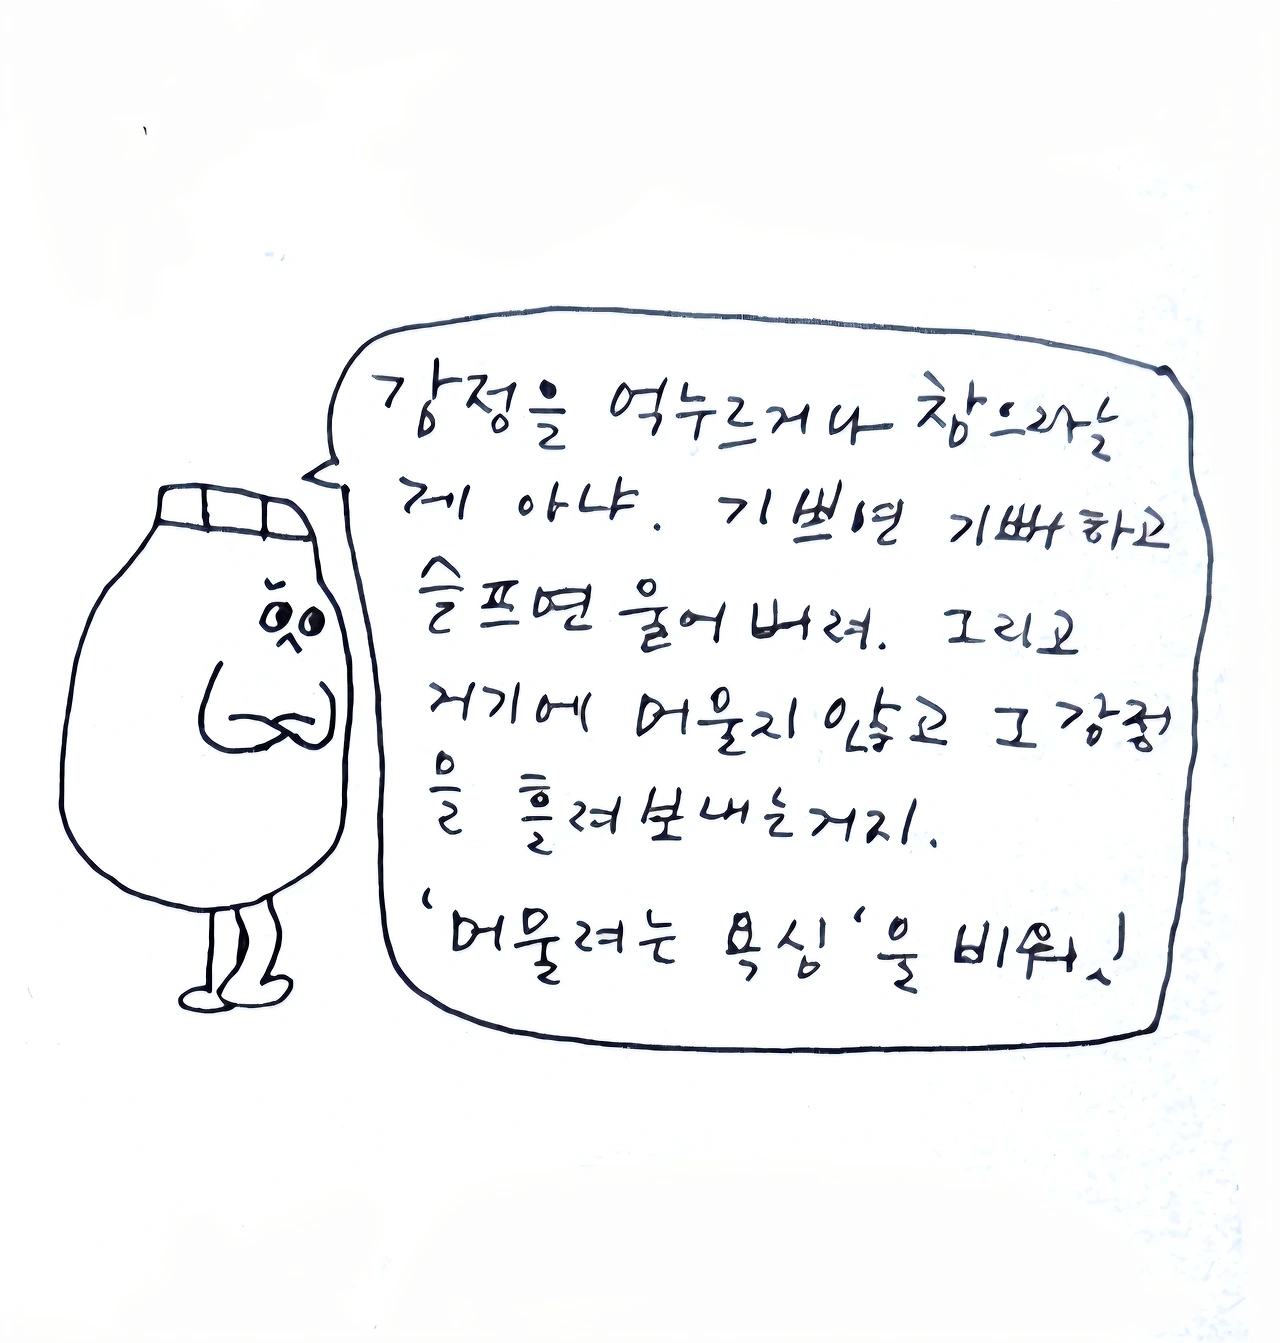 감정을 억누르거나 참으라는
게 아냐. 기쁘면 기뻐하고
슬프면 울어버려. 그리고
거기에 머물지 않고 그 감정
을 흘려보내는거지.
'머물려는 욕심'을 비워!